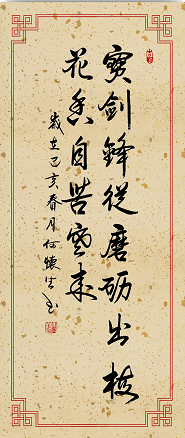 寳劍鋒從磨砺出梅
花香自苦寒来
歲在己亥春月何懷生书